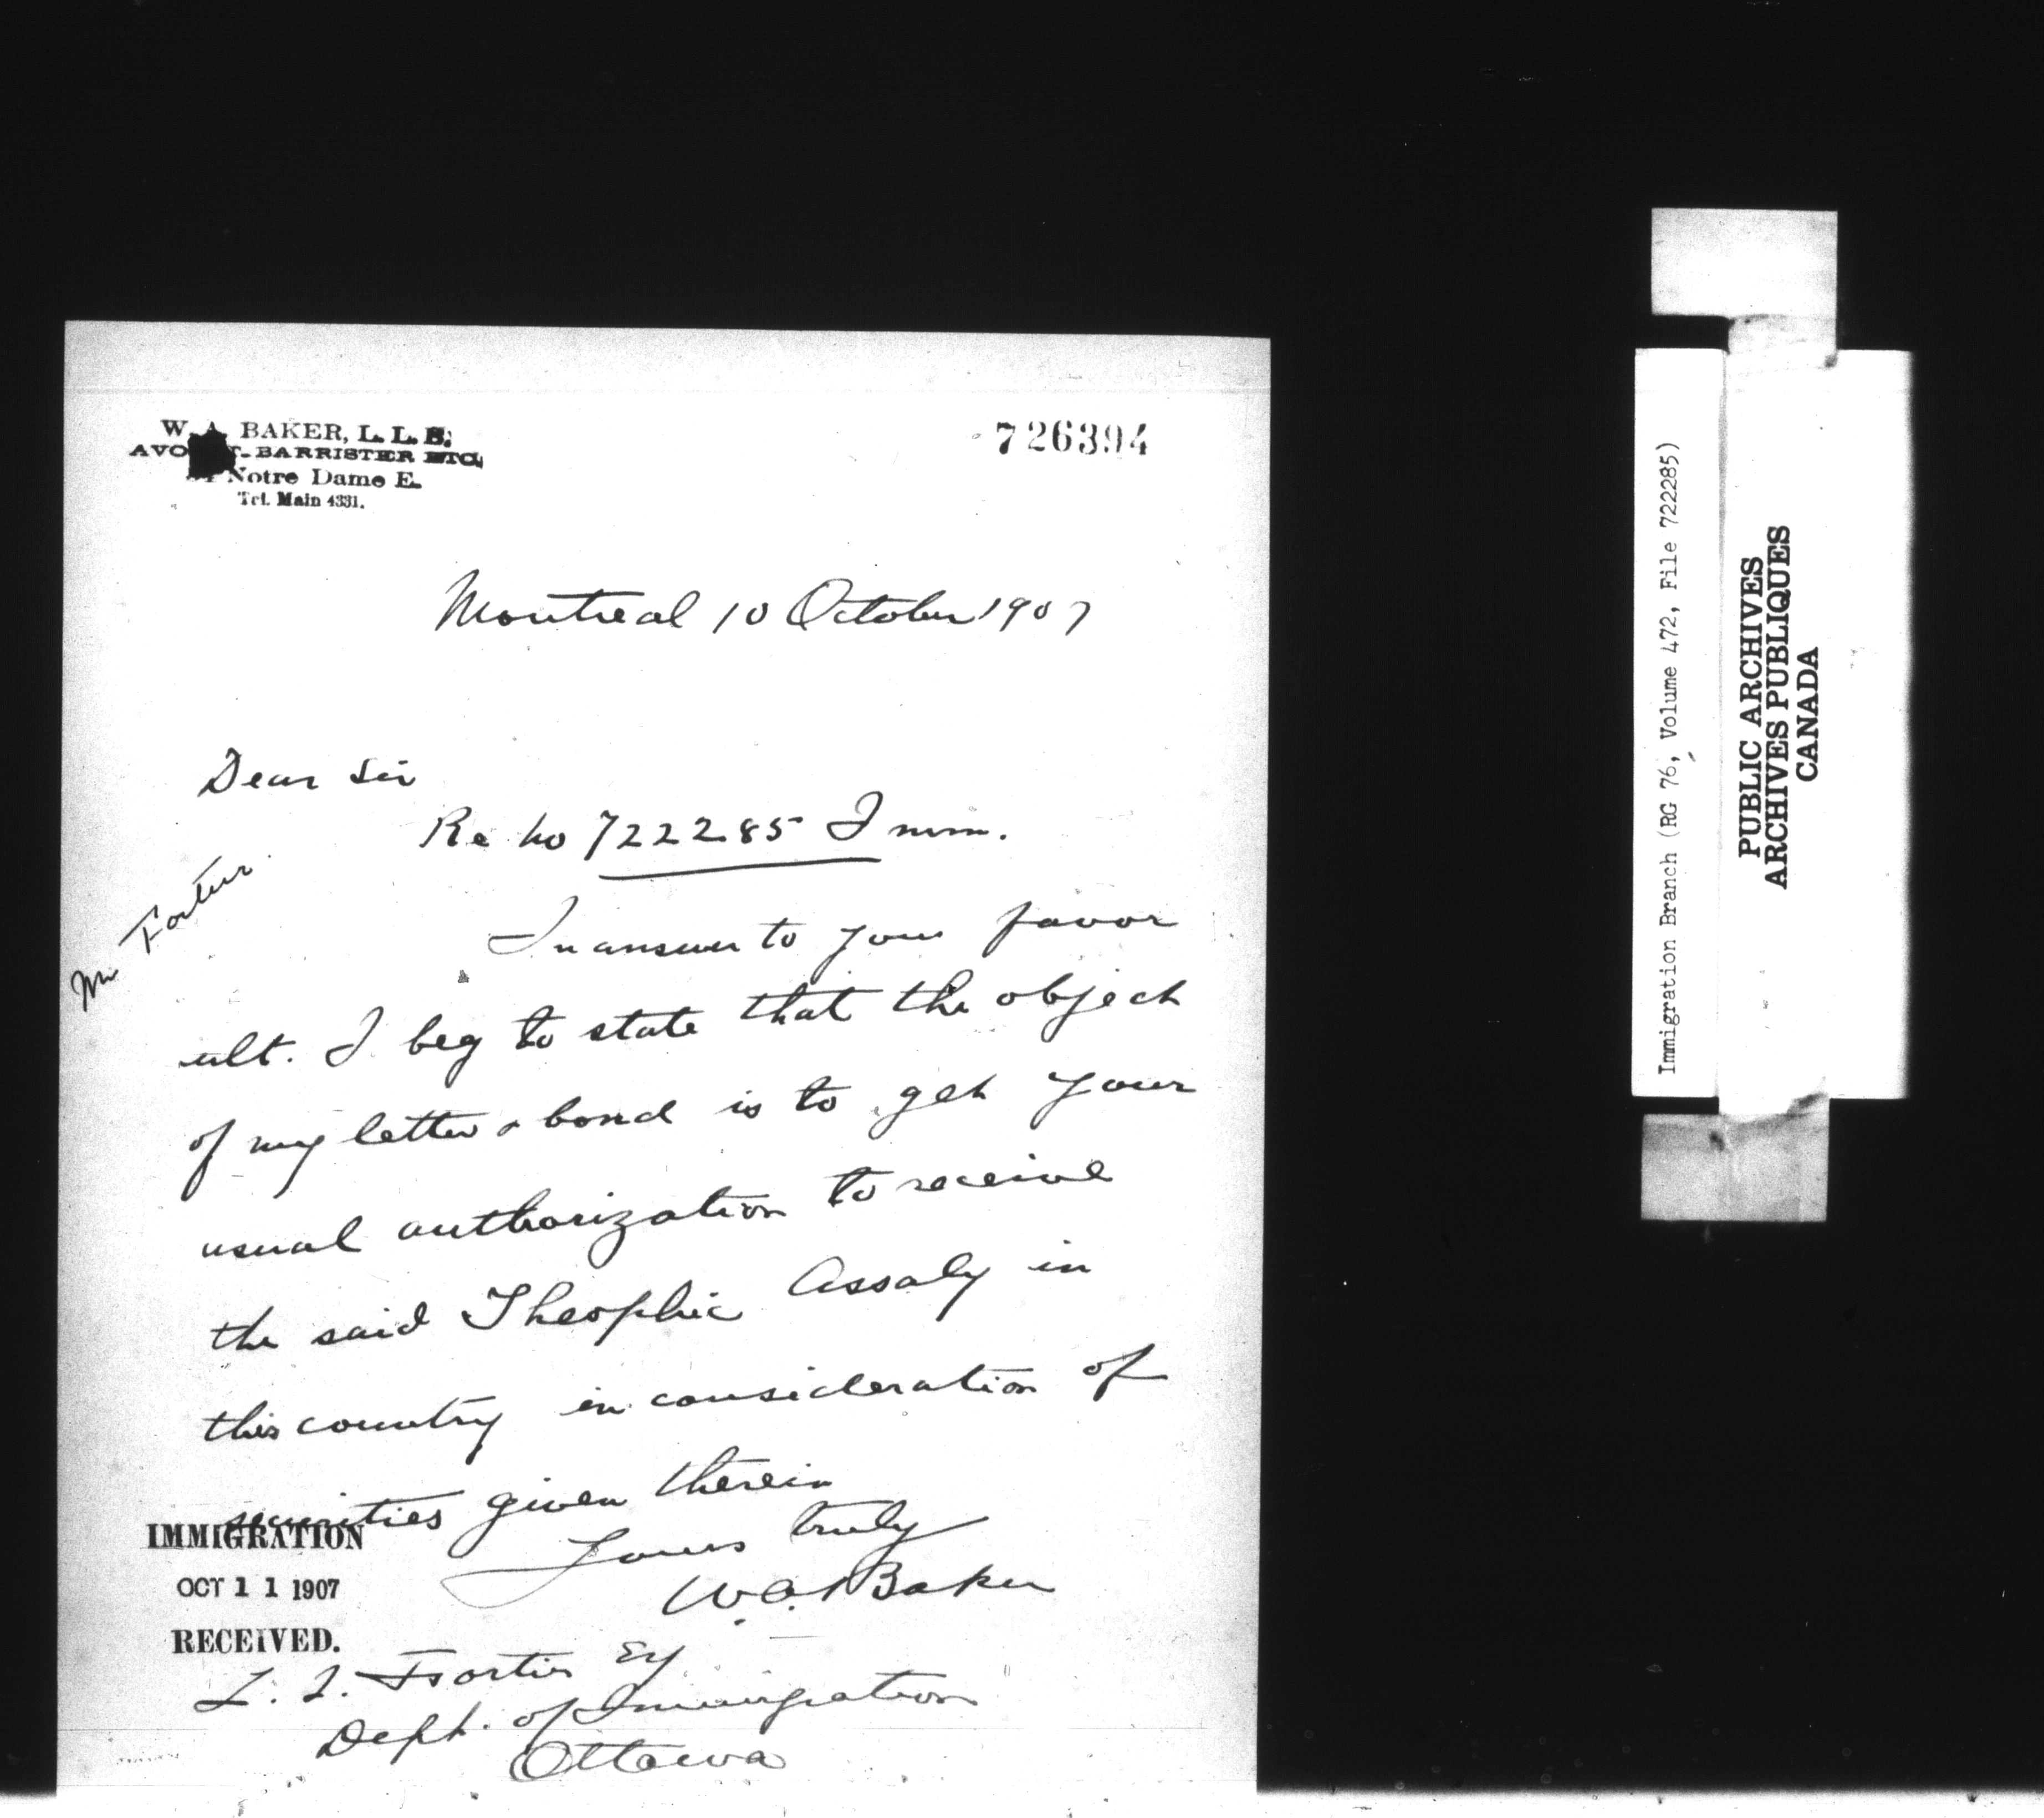 W. A. BAKER, L. L. B.
AVO T. BARRISTER ETC,
Notre Dame E.
Tel. Main 4331.
726394
Montreal 10 October 1907
Dear Sir
Re No 722285 Imm.
Mr Fortier
In answer to your favor
ult. I beg to state that the object
of my letter & bond is to get your
usual authorization to receive
the said Assaly in
this country in consideration of
securities given therein
Yours truly
W. A. Baker
IMMIGRATION
OCT 11 1907
RECEIVED.
L. Fortier Esq
Dept. of Immigration
Ottawa
Immigration Branch (RG 76, Volume 472, File 722285)
PUBLIC ARCHIVES
ARCHIVES PUBLIQUES
CANADA